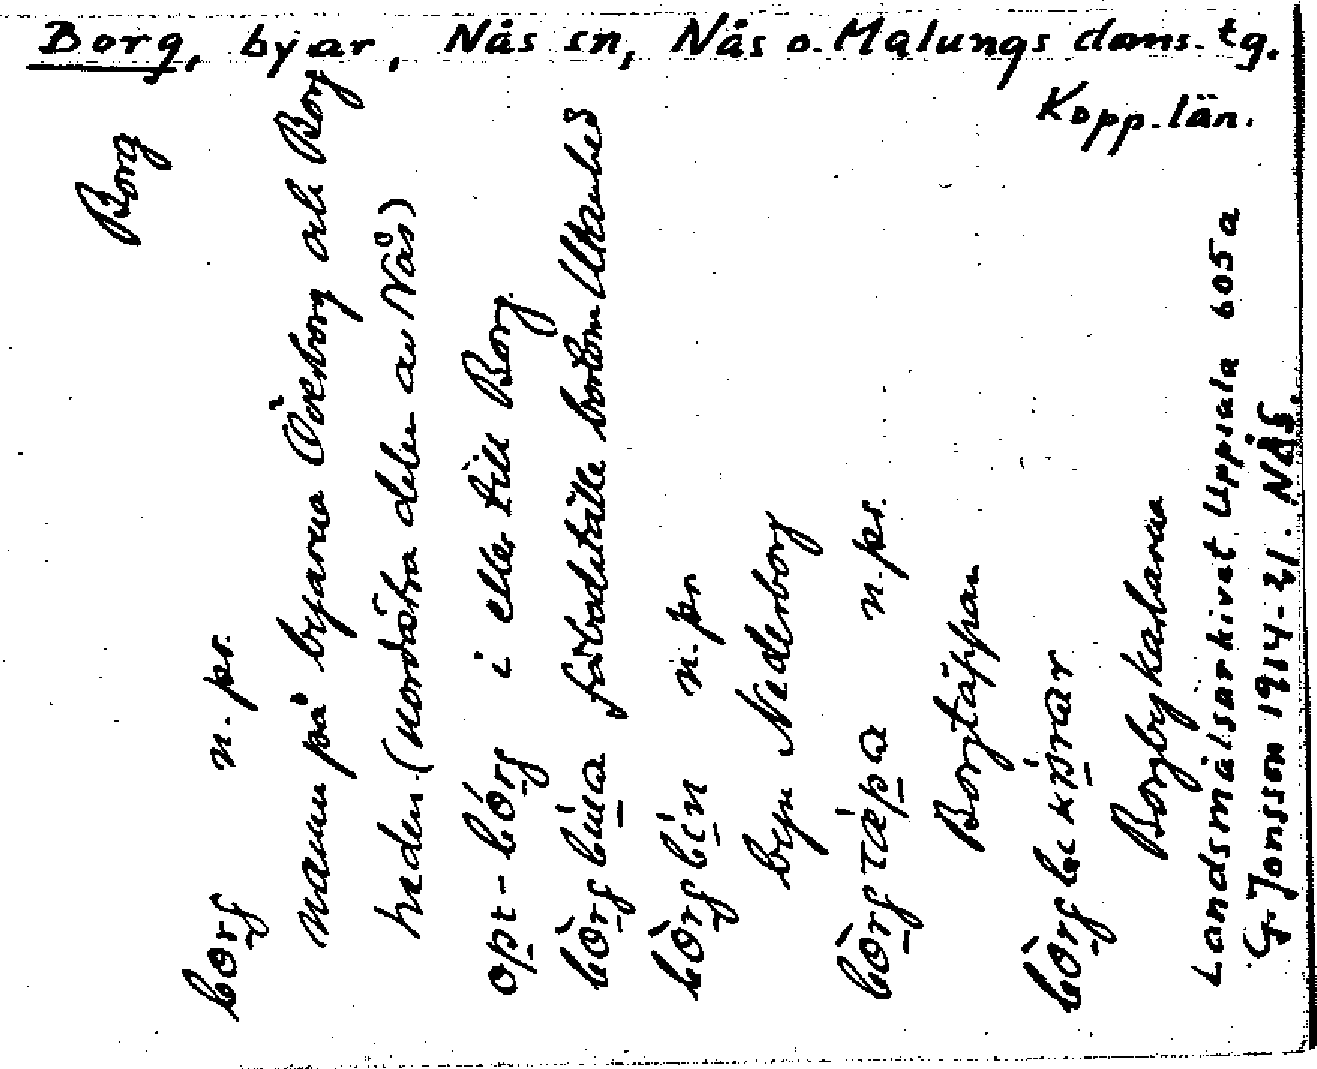 Borg, byar, Nås sn, Nås o. Malungs doms. tg.
Kopp. län.
Borg
borg n. pr.
namn på byarna Överborg och Borg
heden (nordöstra delen av Nås)
opt-bórg i eller till Borg.
bòrgbúɩa fäbodställe bortom Utanhed
bòrgbýn n. pr
byn Nederborg
bòrgtæpa n. pr.
Borgtäppan
Borgbykarlarna
Landsmålsarkivet Uppsala 605a
G. Jonsson 1914-21. NÅS.